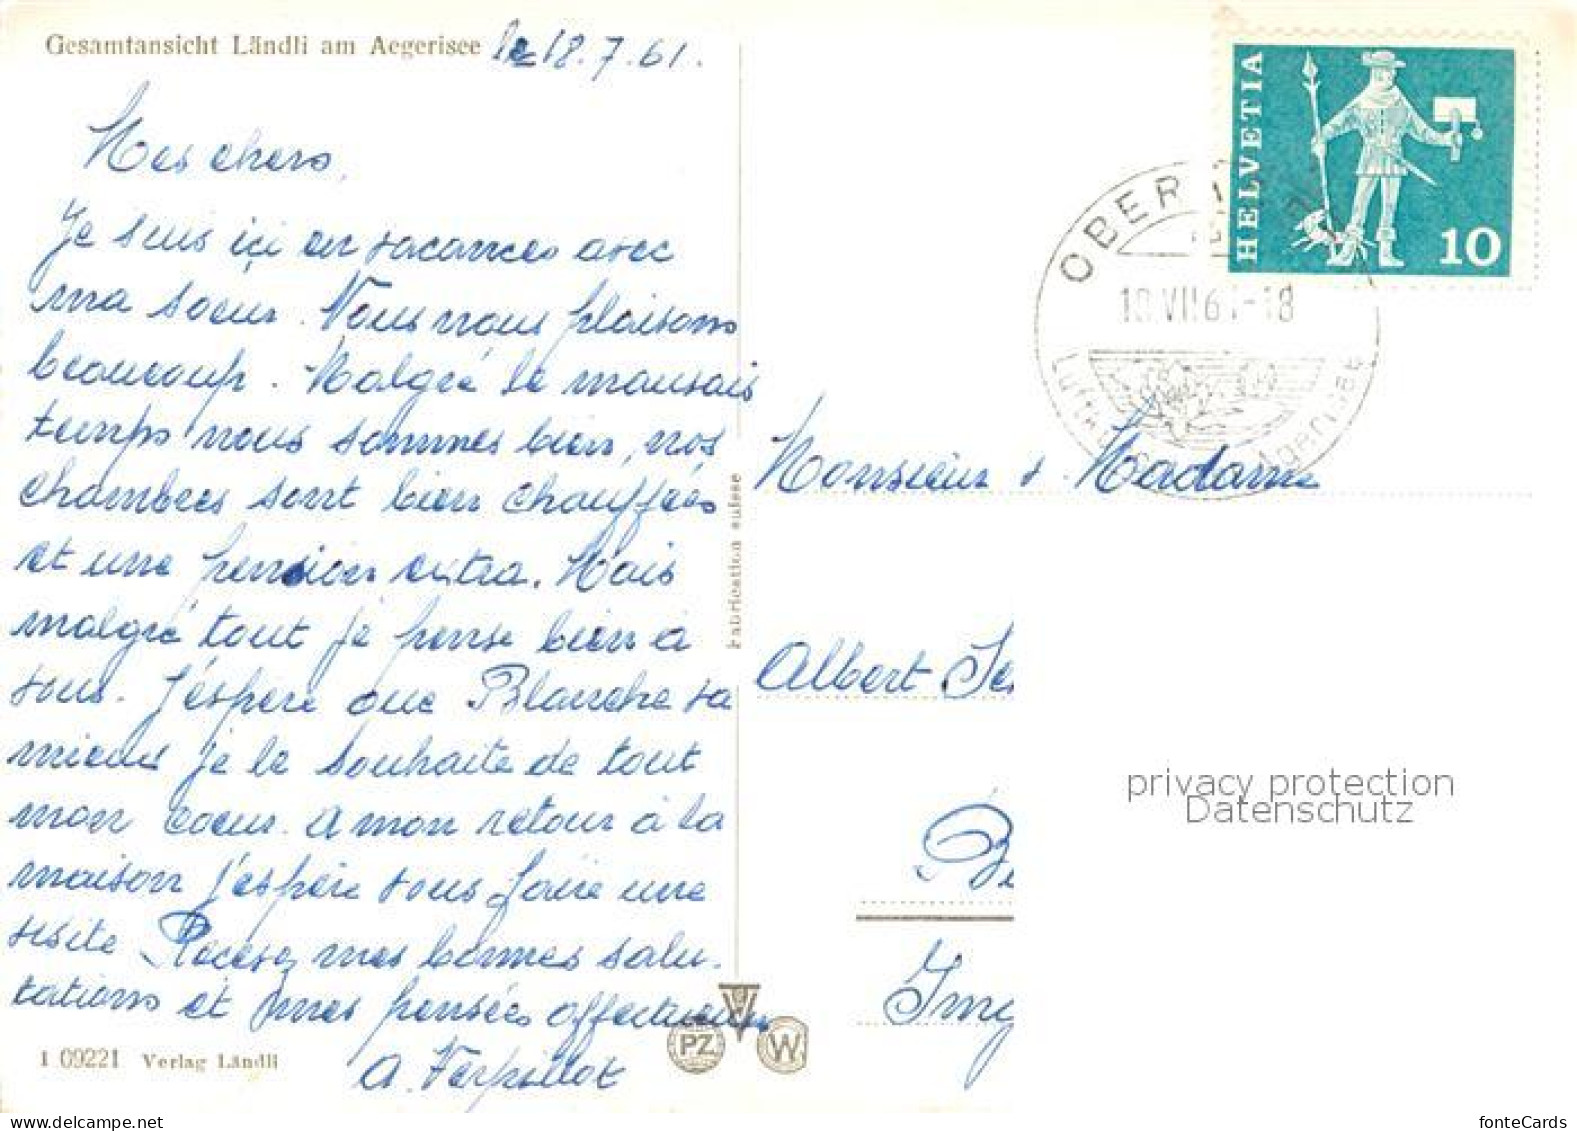 Gesamtansicht Ländli am Aegerisee le 18.7.61.
Mes chers,
Je suis ici en vacances avec
ma soeur. Nous nous plaisons
beaucoup. Malgré le mauvais
temps nous sommes bien, nos
chambres sont bien chauffées
et une pension extra. Mais
malgré tout je pense bien à
vous. J'éspère que Blanche va
mieux je le souhaite de tout
mon coeur. A mon retour à la
maison j'espère vous faire une
visite Recevez mes bonnes salu-
tations et mes pensées affectueuses
A. Verpillot
1 09221 Verlag Ländli
PZ
W
Fabrication suisse
HELVETIA
10
OBER
18.VII.61-18
Monsieur & Madame
Albert
privacy protection
Datenschutz
fonteCards